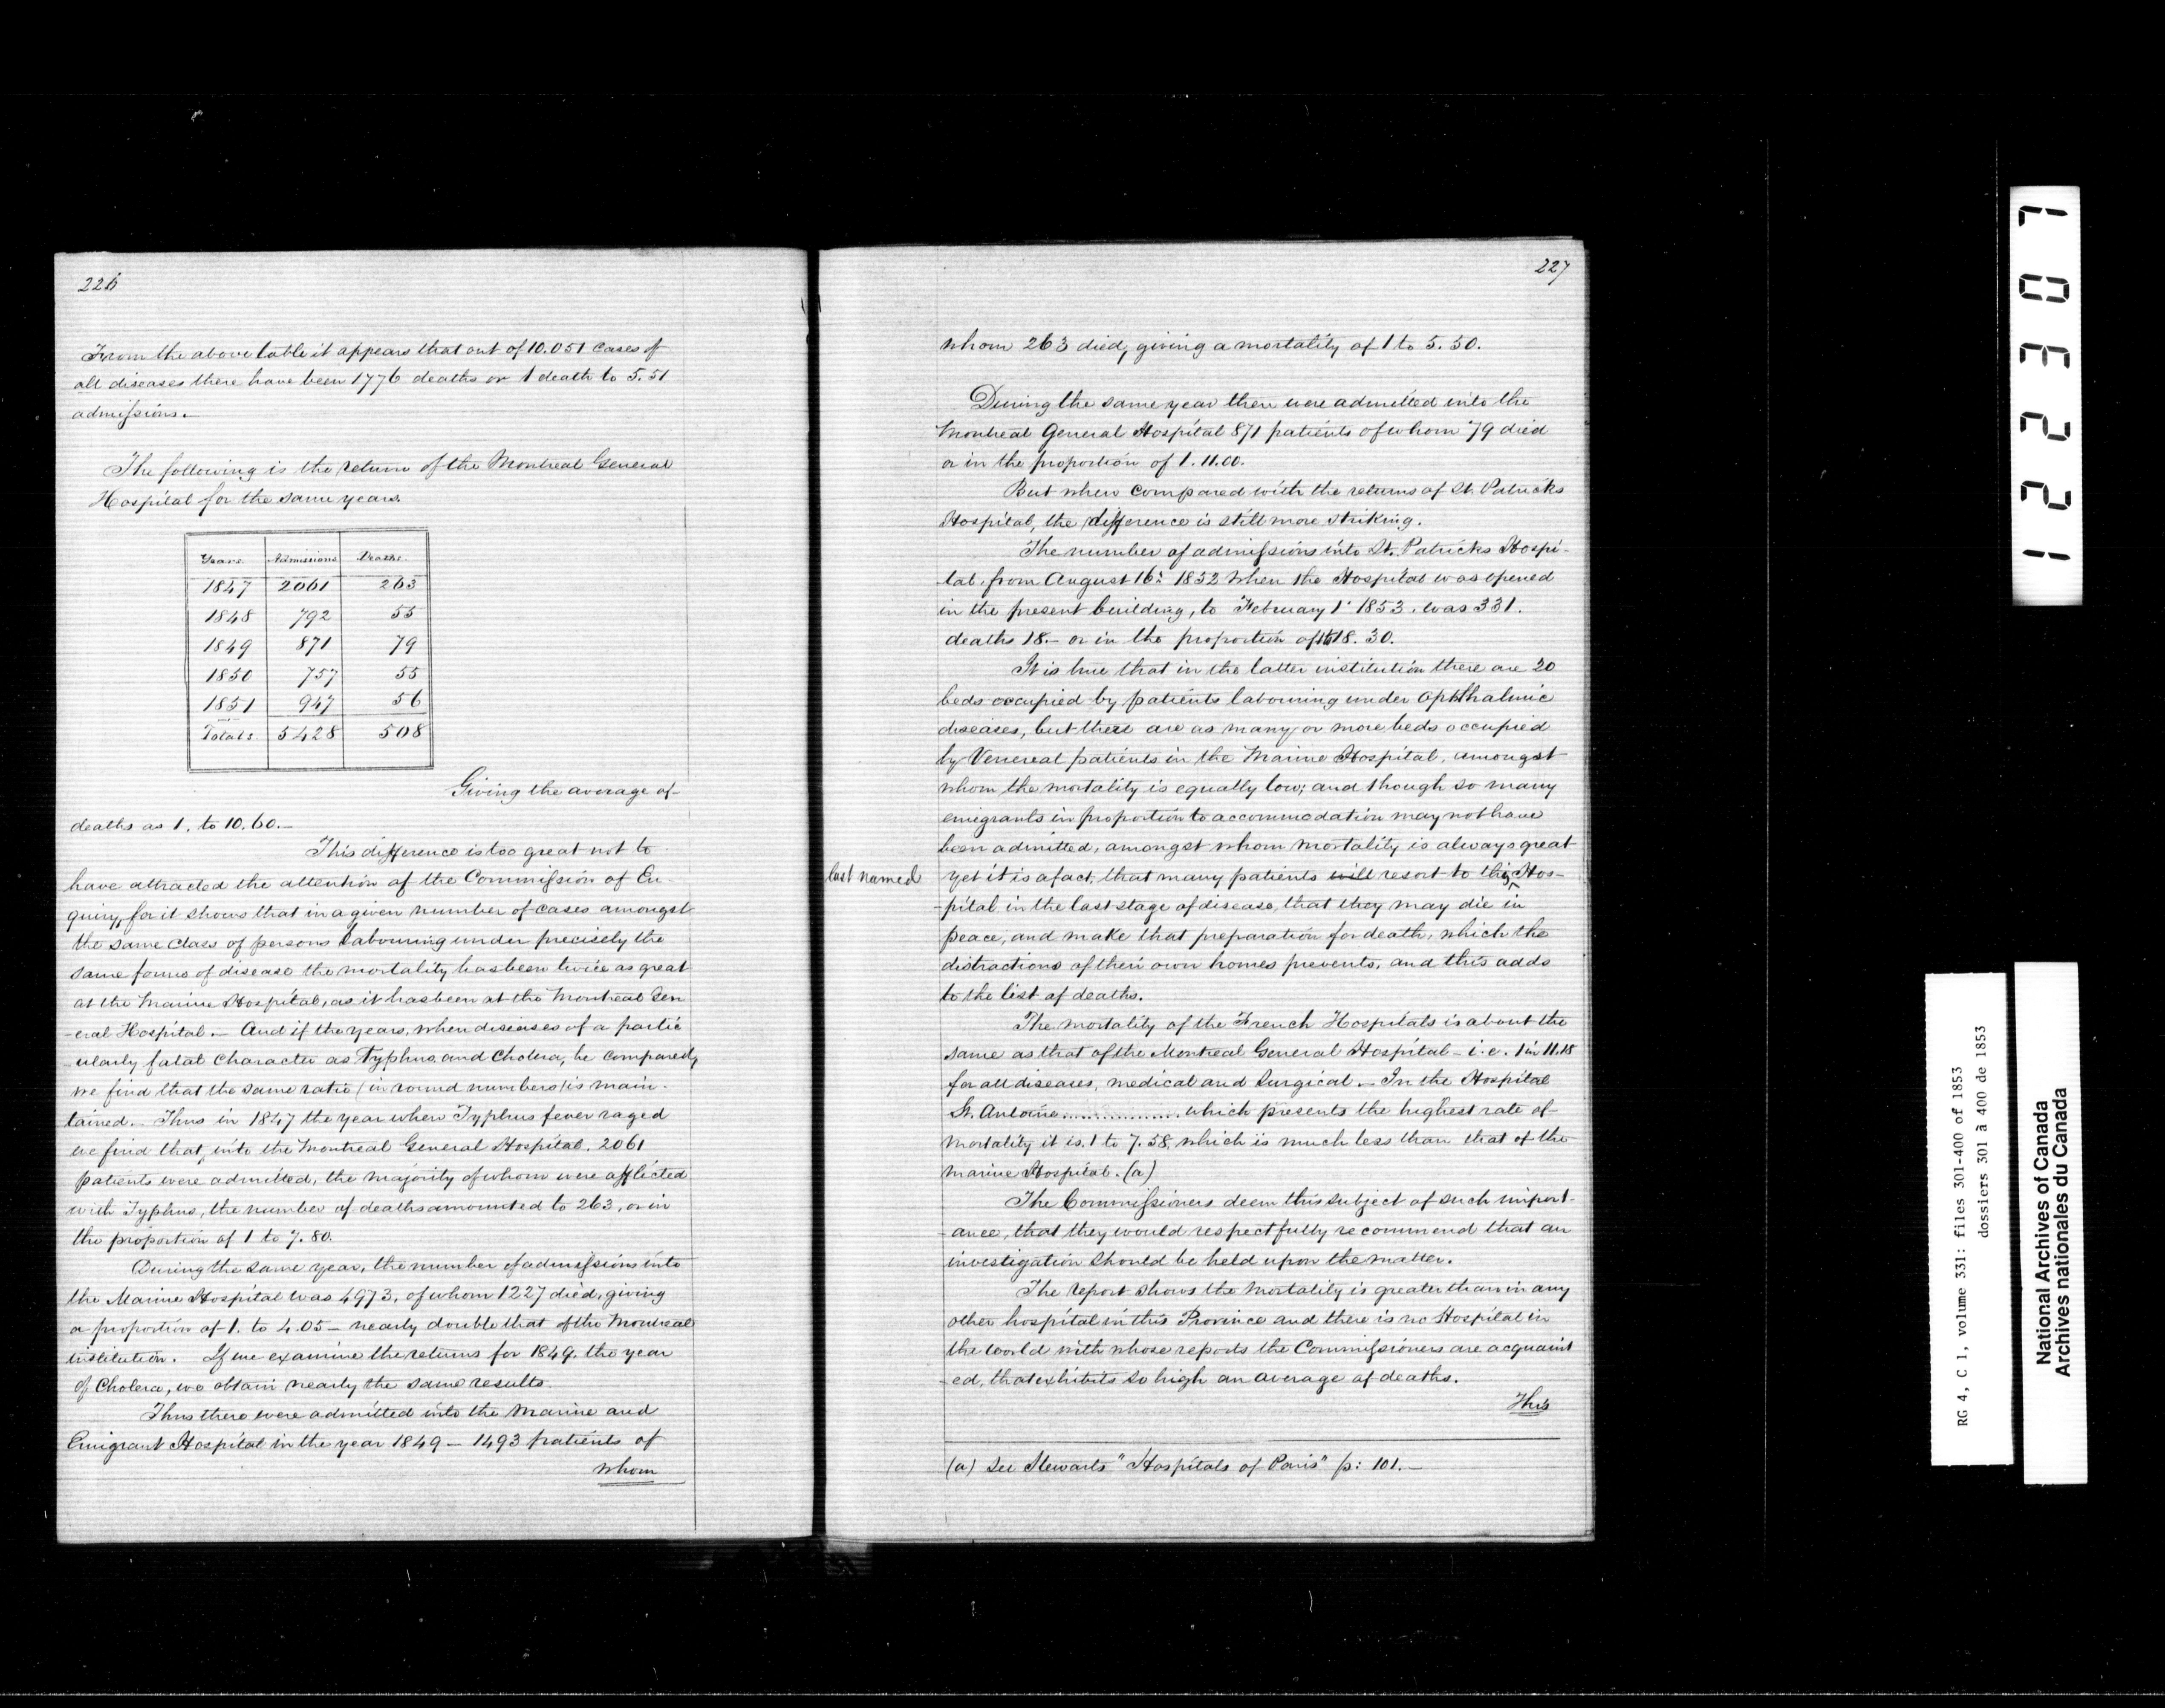 226
From the above table it appears that out of 10.051 cases of
all diseases there have been 1776 deaths or 1 death to 5.51
admissions.
The following is the return of the Montreal General
Hospital for the same years.
Years Admissions Deaths.
1847 2061 263
1848 792 55
1849 871 79
1850 757 55
1851 947 56
Totals. 5428 508
Giving the average of
deaths as 1. to 10.60.—
This difference is too great not to
have attracted the attention of the Commission of En-
quiry, for it shows that in a given number of cases amongst
the same class of persons labouring under precisely the
same forms of disease the mortality has been twice as great
at the Marine Hospital, as it has been at the Montreal Gen
-eral Hospital.— And if the years, when diseases of a partic
-ularly fatal character as Typhus and Cholera, be compared,
we find that the same ratio (in round numbers) is main-
tained.— Thus in 1847 the year when Typhus fever raged
we find that, into the Montreal General Hospital, 2061
patients were admitted, the majority of whom were afflicted
with Typhus, the number of deaths amounted to 263, or in
the proportion of 1 to 7.80.
During the same year, the number of admissions into
the Marine Hospital was 4973, of whom 1227 died, giving
a proportion of 1. to 4.05 — nearly double that of the Montreal
institution. If we examine the returns for 1849, the year
of Cholera, we obtain nearly the same results.
Thus there were admitted into the Marine and
Emigrant Hospital in the year 1849 — 1493 patients of
whom
227
whom 263 died, giving a mortality of 1 to 5.50.
During the same year there were admitted into the
Montreal General Hospital 871 patients of whom 79 died
or in the proportion of 1.11.00.
But when compared with the returns of St. Patricks
Hospital, the difference is still more striking.
The number of admissions into St. Patricks Hospi-
-tal, from August 16: 1852 when the Hospital was opened
in the present building, to February 1' 1853, was 331.
deaths 18.— or in the proportion of 1 to 18.30.
It is true that in the latter institution there are 20
beds occupied by patients labouring under Ophthalmic
diseases, but there are as many or more beds occupied
by Venereal patients in the Marine Hospital, amongst
whom the mortality is equally low; and though so many
emigrants in proportion to accommodation may not have
been admitted, amongst whom mortality is always great
last named
yet it is a fact, that many patients will resort to this Hos-
-pital in the last stage of disease, that they may die in
peace, and make that preparation for death, which the
distractions of their own homes prevents, and this adds
to the list of deaths.
The mortality of the French Hospitals is about the
same as that of the Montreal General Hospital — i.e. 1 in 11.18
for all diseases, medical and Surgical.— In the Hospital
St. Antoine................ which presents the highest rate of
mortality it is 1 to 7.58, which is much less than that of the
Marine Hospital. (a)
The Commissioners deem this subject of such import-
-ance, that they would respectfully recommend that an
investigation should be held upon the matter.
The report shows the mortality is greater than in any
other hospital in this Province and there is no Hospital in
the world with whose reports the Commissioners are acquaint
-ed, that exhibits so high an average of deaths.
This
(a) See Stewarts "Hospitals of Paris" p: 101.—
122307
RG 4, C 1, volume 331: files 301-400 of 1853
dossiers 301 à 400 de 1853
National Archives of Canada
Archives nationales du Canada